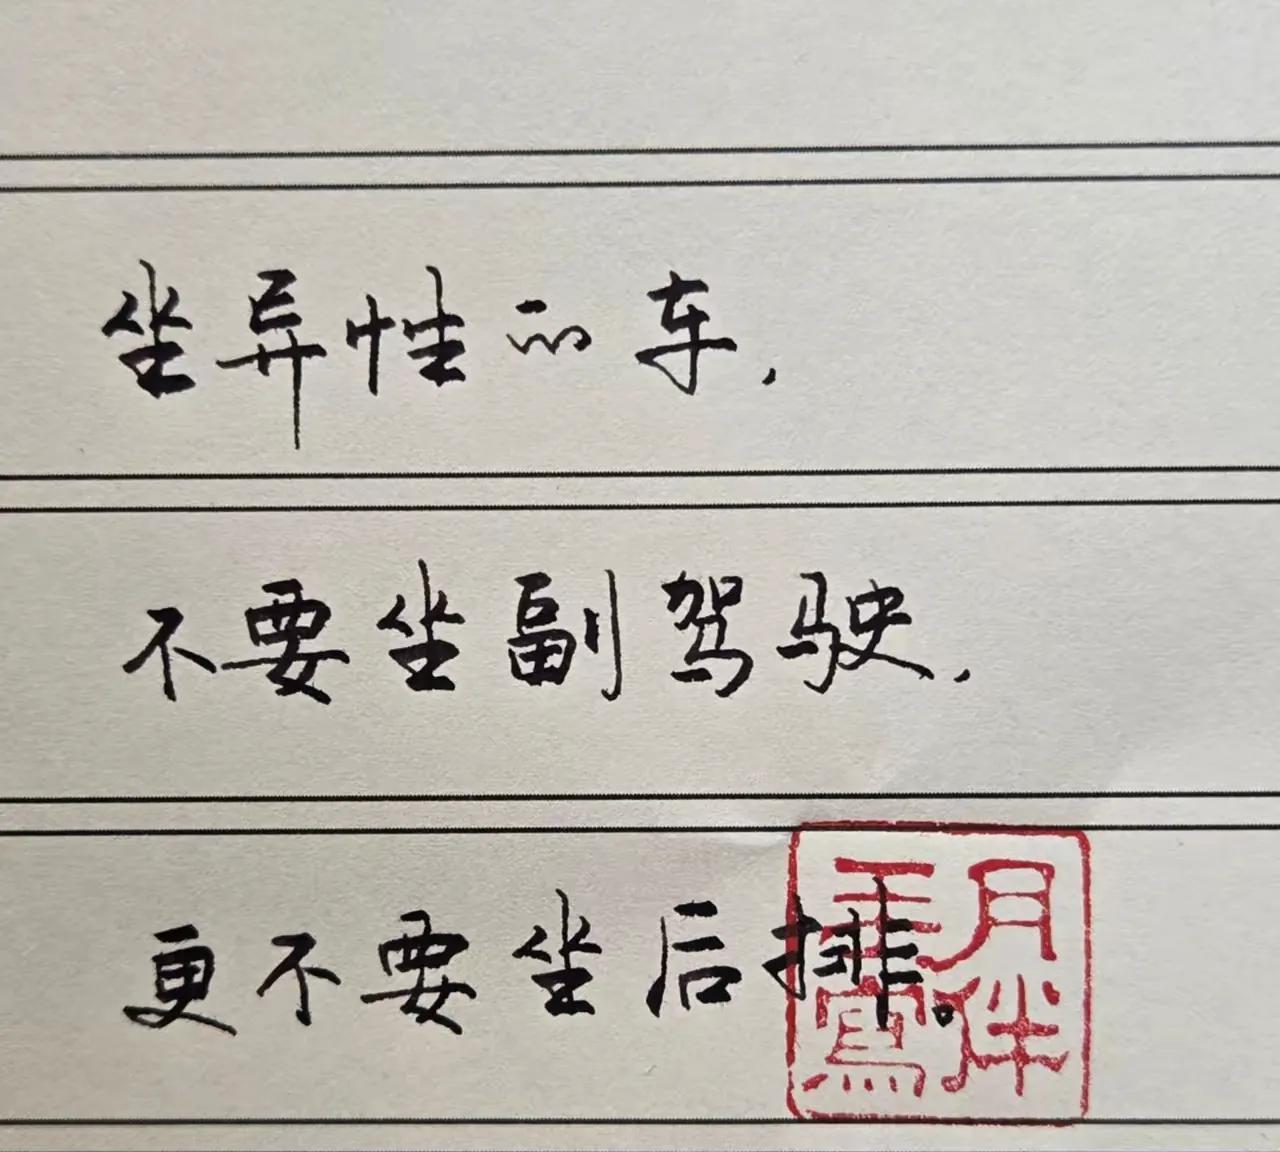 坐异性的车，
不要坐副驾驶，
更不要坐后排。
月伴
手写